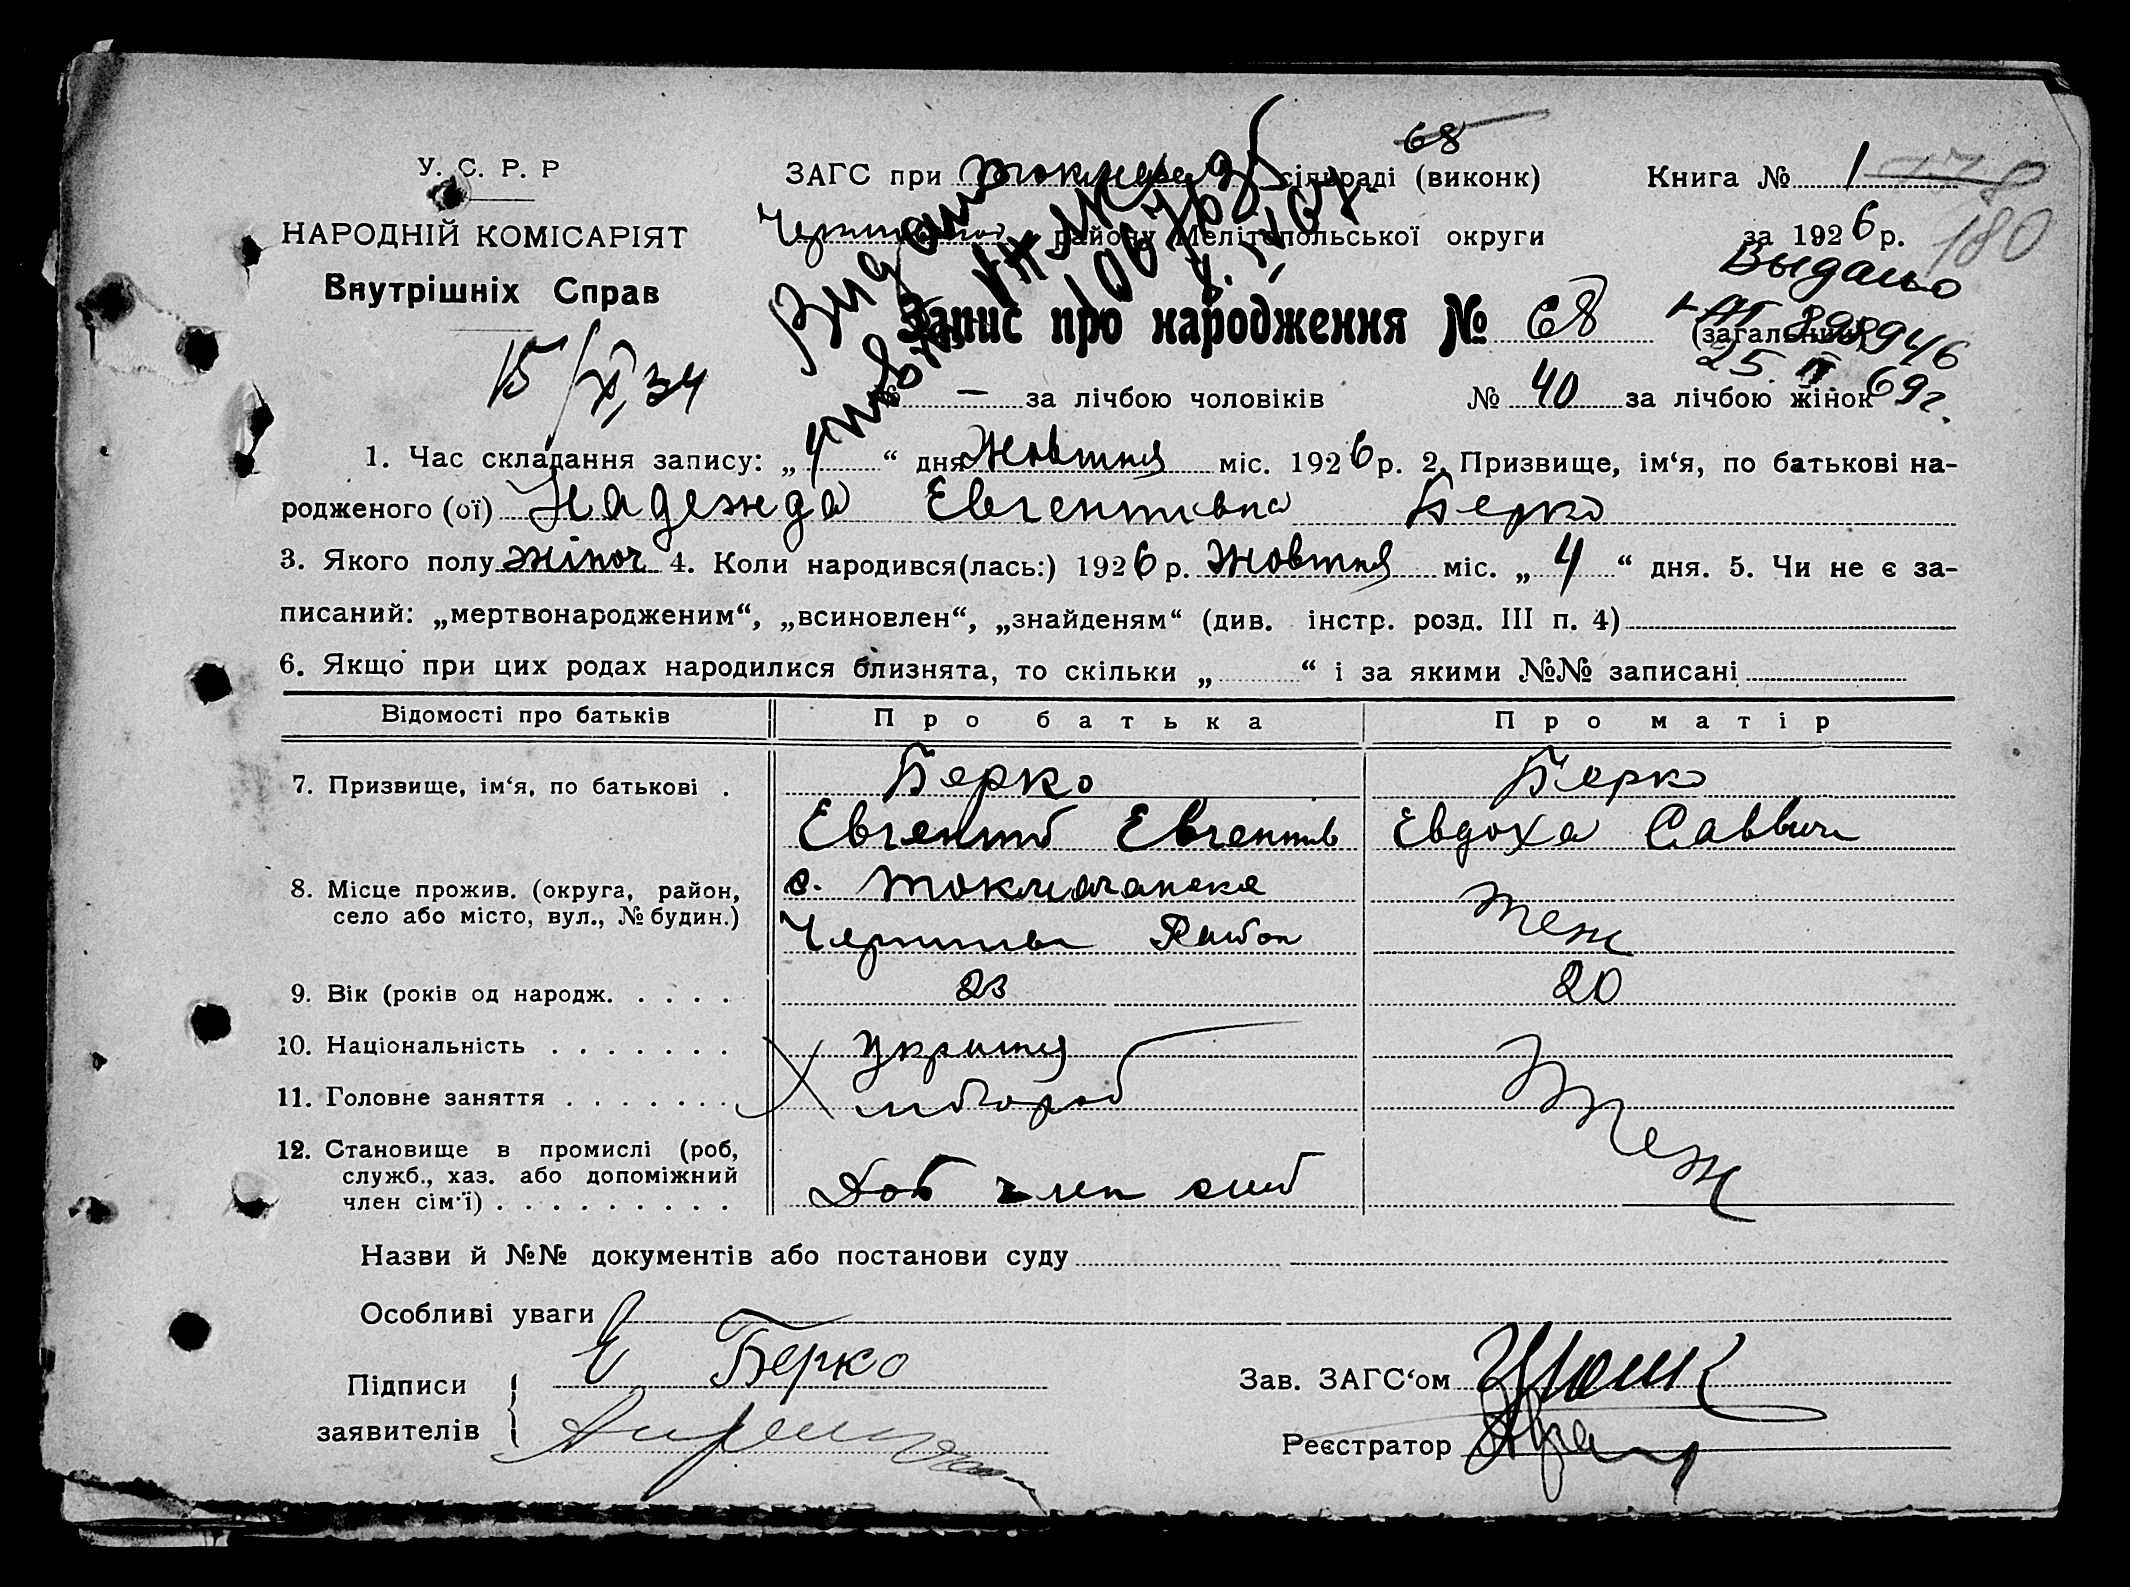 У. С. Р. Р
НАРОДНІЙ КОМІСАРІЯТ
Внутрішніх Справ
15/XI 34
68
ЗАГС при сільраді (виконк)
Книга № 1
178
180
району Мелітопольської округи
за 1926 р.
Выдано
Запис про народження № 68 (загальний)
25. 69г.
№ — за лічбою чоловіків № 40 за лічбою жінок
1. Час складання запису: „4“ дня Жовтня міс. 1926 р. 2. Призвище, ім‘я, по батькові на-
родженого (ої) Надежда Евгентівна Берко
3. Якого полу жіноч 4. Коли народився(лась:) 1926 р. Жовтня міс. „4“ дня. 5. Чи не є за-
писаний: „мертвонародженим“, „всиновлен“, „знайденям“ (див. інстр. розд. III п. 4)
6. Якщо при цих родах народилися близнята, то скільки „ “ і за якими №№ записані
Відомості про батьків Про батька Про матір
7. Призвище, ім‘я, по батькові . Берко Берко
Евгентій Евгентів Евдоха Саввич
8. Місце прожив. (округа, район, с.
село або місто, вул., № будин.) Район теж
9. Вік (років од народж. . . . . 23 20
10. Національність . . . . . . . Українц
11. Головне заняття . . . . . . . хлібороб теж
12. Становище в промислі (роб,
служб., хаз. або допоміжний
член сім‘ї) . . . . . . . . . Доб член сімі
Назви й №№ документів або постанови суду
Особливі уваги
Підписи Е Берко
заявителів
Зав. ЗАГС‘ом
Реєстратор